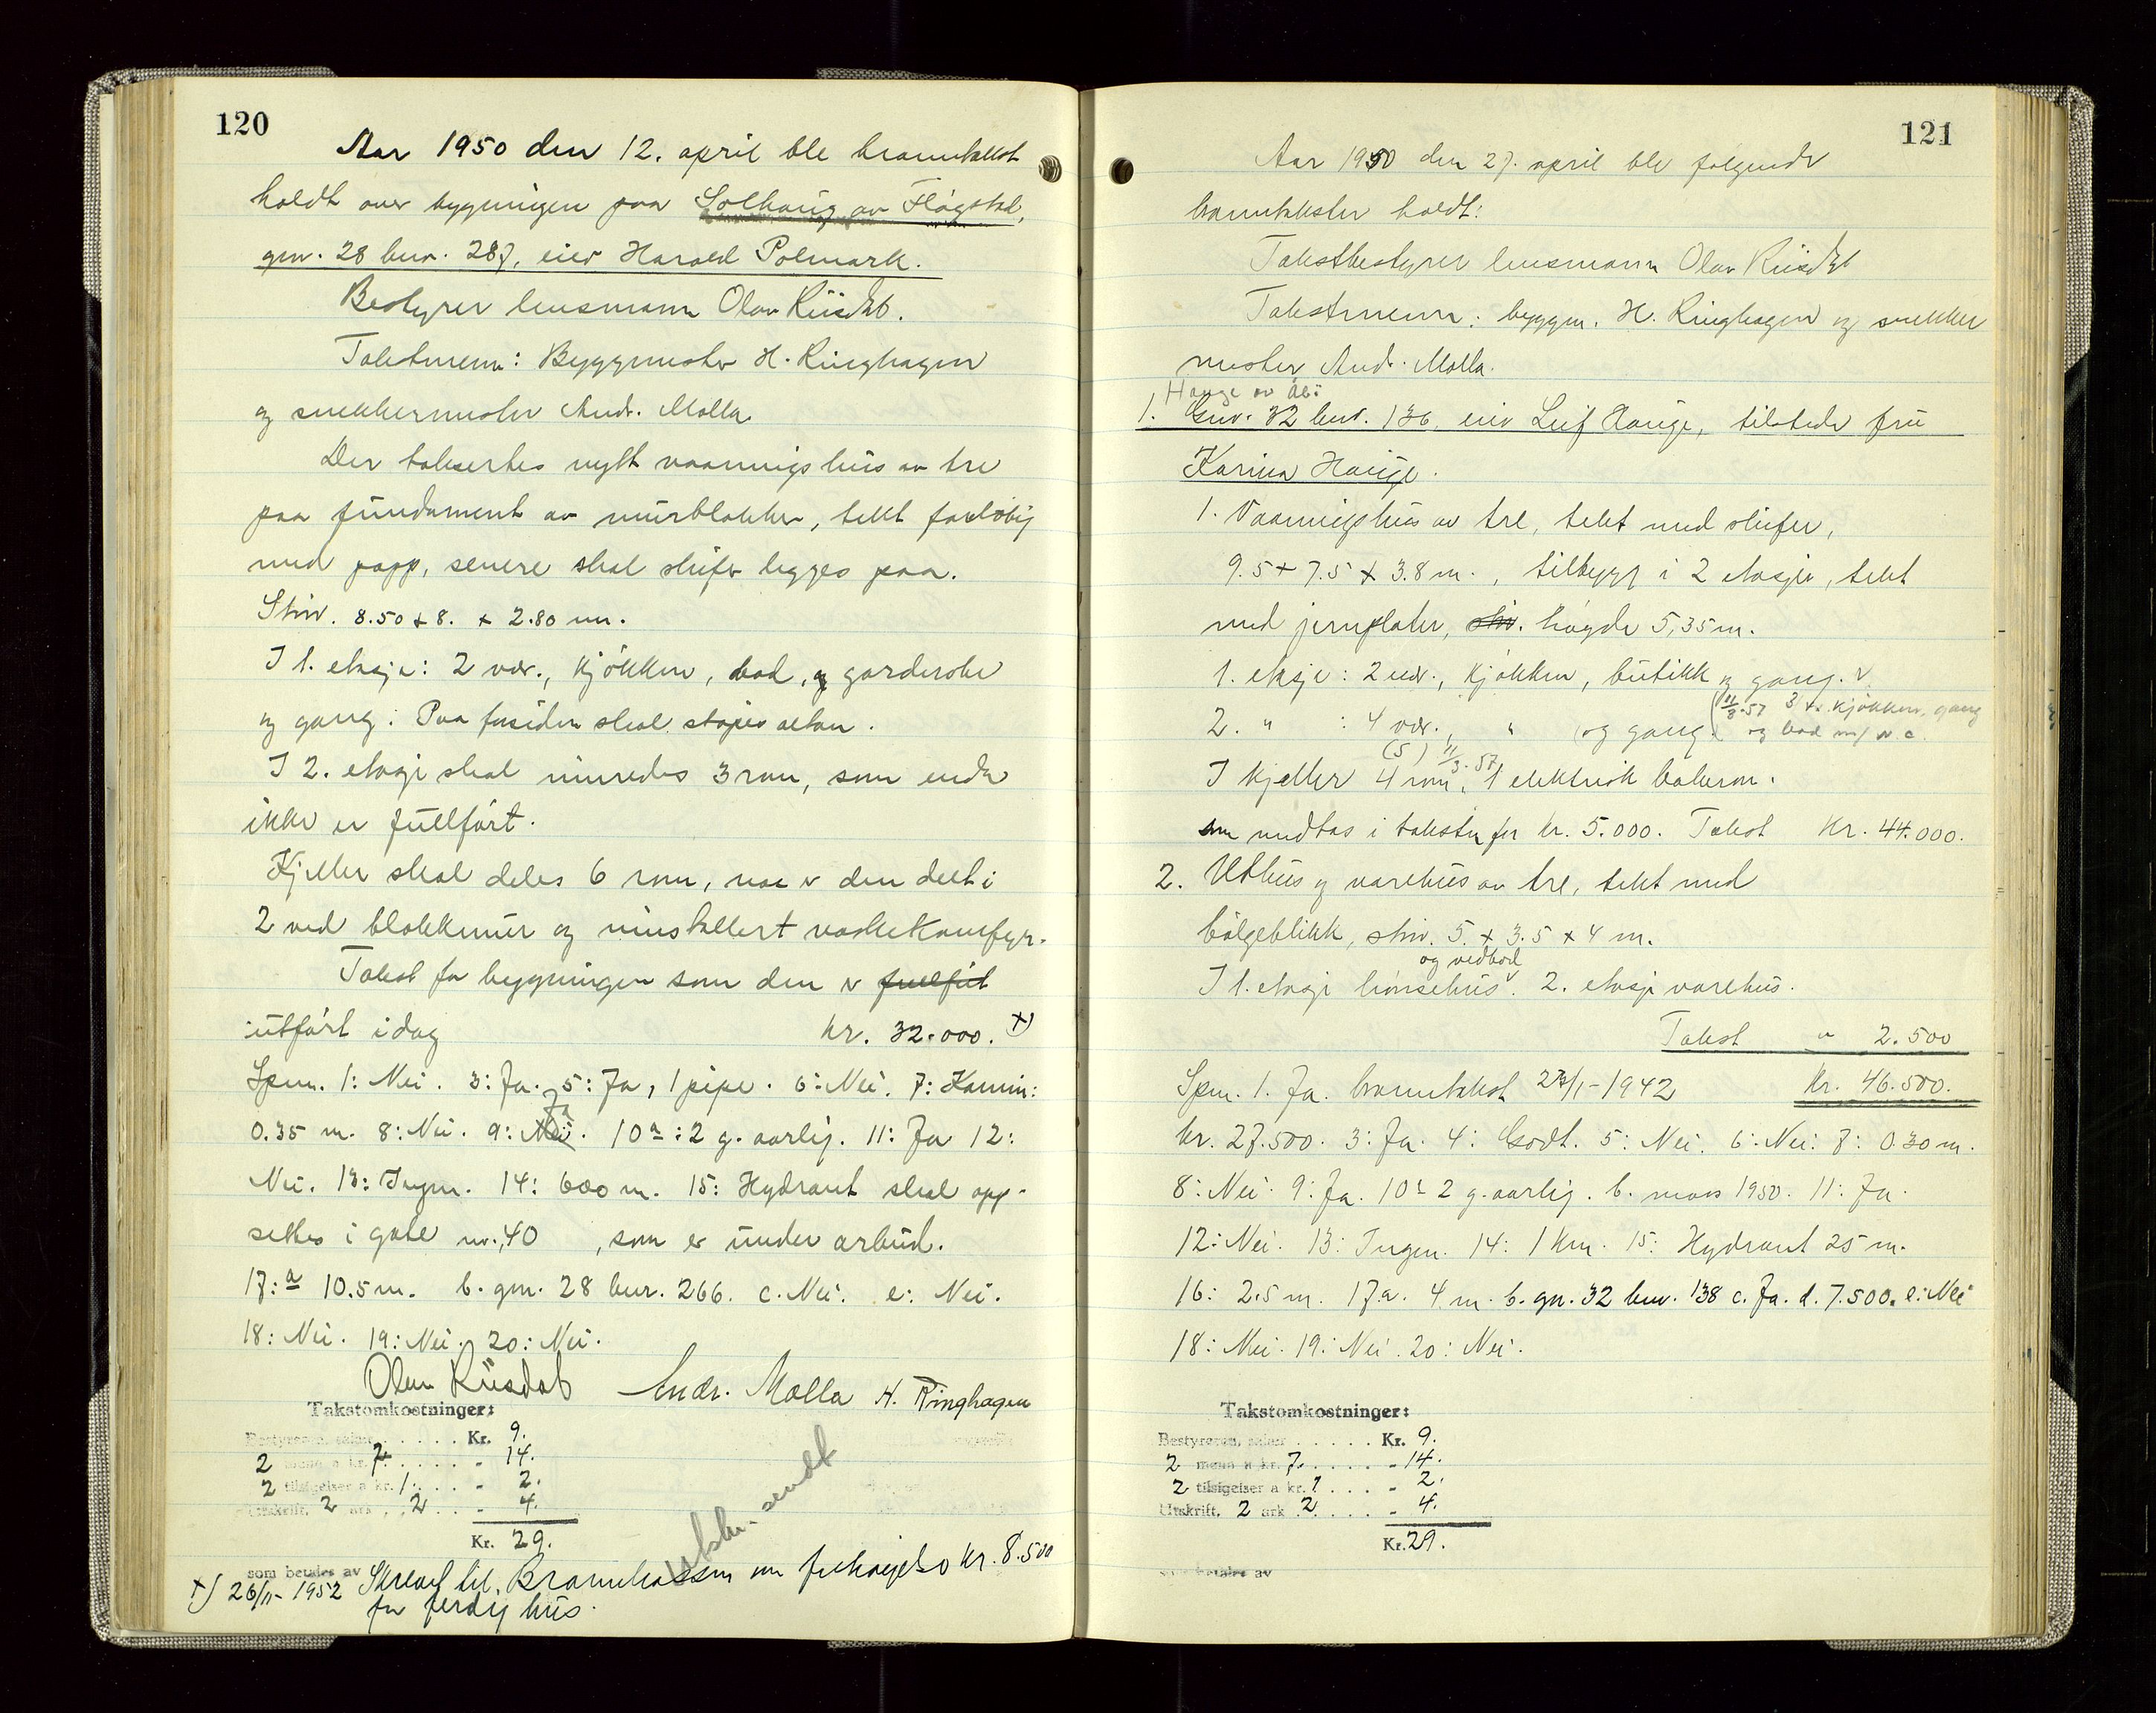 120
Aar 1950 den 12. april ble branntakst
holdt over bygningen paa Solhaug av Flogstad,
gnr. 28 bnr. 287, eier Harald Polmark.
Bestyrer lensmann Olav Riisdal.
Takstmenn: Byggmester H. Ringhagen
og snekkermester Andr. Molla.
Der taksertes nytt vaaningshus av tre
paa fundament av murblokker, tekt foreløbig
med papp, senere skal skifer legges paa.
Stør. 8.50 x 8. x 2.80 m.
I 1. etasje: 2 vær., kjøkken, bad, og garderobe
og gang. Paa fasiden skal støpes altan.
I 2. etasje skal innredes 3 rom, som enda
ikke er fullført.
Kjeller skal deles 6 rom, naa er den delt i
2 ved blokkmur og innstallert vaskekomfyr.
Takst for bygningen som den er fullført
utført idag kr. 32.000. x)
Spm. 1: Nei. 3: Ja. 5: Ja, 1 pipe. 6: Nei. 7: Kamin:
0.35 m. 8: Nei. 9: Nei. Ja 10a: 2 g. aarlig. 11: Ja 12:
Nei. 13: Ingen. 14: 600 m. 15: Hydrant skal opp-
settes i gate nr. 40 , som er under arbeid.
17: a 10.5 m. b. gnr. 28 bnr. 266. c. Nei. e: Nei.
18: Nei. 19: Nei. 20: Nei.
Olav Riisdal Andr. Molla H. Ringhagen
Takstomkostninger:
Bestyreren, salær . . . . . . Kr. 9.
2 menn a kr. 7. . . . . . - 14.
2 tilsigelser a kr. 1. . . . - 2.
Utskrift, 2 ark . 2 . . . - 4.
Kr. 29.
utskr. sendt
som betales av
x) 26/11-1952 Skrevet til Brannkassen om forhøyelse kr. 8.500
for ferdig hus.
121
Aar 1950 den 27. april ble følgende
branntakster holdt:
Takstbestyrer lensmann Olav Riisdal
Takstmenn: byggm. H. Ringhagen og snekker
mester Andr. Molla.
Hauge av
1. Gnr. 32 bnr. 136, eier Leif Hauge, tilstede fru
Karina Hauge.
1. Vaaningshus av tre, tekt med skifer,
9.5 x 7.5 x 3.8 m., tilbygg i 2 etasjer, tekt
med jernplater, stør. høgde 5,35 m.
1. etasje: 2 vær., kjøkken, butikk og gang.
2. " : 4 vær., " og gang. (11/8.57 3 kjøkken, gang
og bad m/ w c.
(5) 11/3.57
I kjeller 4 rom, 1 elektrisk bakerom.
som medtas i taksten for kr. 5.000. Takst kr. 44.000.
2. Uthus og varehus av tre, tekt med
bølgeblikk, stør. 5. x 3.5 x 4 m.
og vedbod
I 1. etasje hønsehus. 2. etasje varehus.
Takst " 2.500
Spm. 1. Ja. branntakst 27/1-1942 kr. 46.500.
kr. 27.500. 3: Ja. 4: Godt. 5: Nei. 6: Nei: 7: 0.30 m.
8: Nei. 9: Ja. 10a 2 g. aarlig. b. mars 1950. 11: Ja.
12: Nei. 13: Ingen. 14: 1 km. 15: Hydrant 25 m.
16: 2.5 m. 17a. 4 m. b. gn. 32 bnr. 138 c. Ja. d. 7.500. e: Nei
18: Nei. 19: Nei. 20: Nei.
Takstomkostninger:
Bestyreren, salær . . . . . . Kr. 9.
2 menn a kr. 7. . . . . . - 14.
2 tilsigelser a kr. 1 . . . - 2.
Utskrift, 2 ark 2 . . . . - 4.
Kr. 29.
som betales av